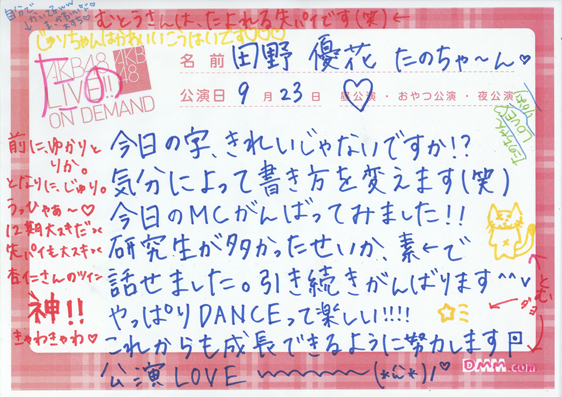 むとうさんは、たよれる先パイです(笑)←
じゅりちゃんはかわいいこうはいです♡♡♡
AKB48
LIVE!!
ON DEMAND
AKB
48
たの
名前 田野 優花 たのちゃ〜ん♡
公演日 9月23日 昼公演・おやつ公演・夜公演
今日の字、きれいじゃないですか!?
気分によって書き方を変えます(笑)
今日のMCがんばってみました!!
研究生が多かったせいか、素←で
話せました。引き続きがんばります^^v
やっぱりDANCEって楽しい!!!!
これからも成長できるように努力します
公演LOVE 〜〜〜〜
前に、ゆかりと
りか。
となりに、じゅり。
うっひゃぁ〜♡
12期大スキだっ
先パイも大スキっ
杏仁さんのツイン
神!!
きゃわきゃわ♡
とむ
DMM.com